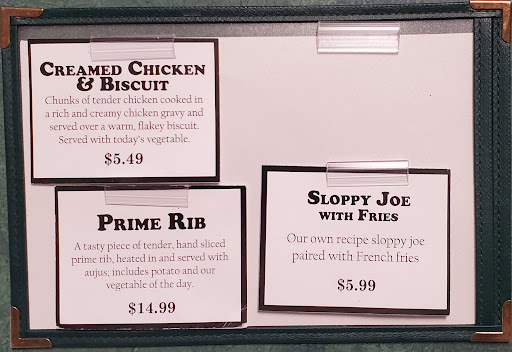 CREAMED CHICKEN
& BISCUIT
Chunks of tender chicken cooked in
a rich and creamy chicken gravy and
served over a warm, flakey biscuit.
Served with today's vegetable.
$5.49
PRIME RIB
A tasty piece of tender, hand sliced
prime rib, heated in and served with
aujus; includes potato and our
vegetable of the day.
$14.99
SLOPPY JOE
WITH FRIES
Our own recipe sloppy joe
paired with French fries
$5.99